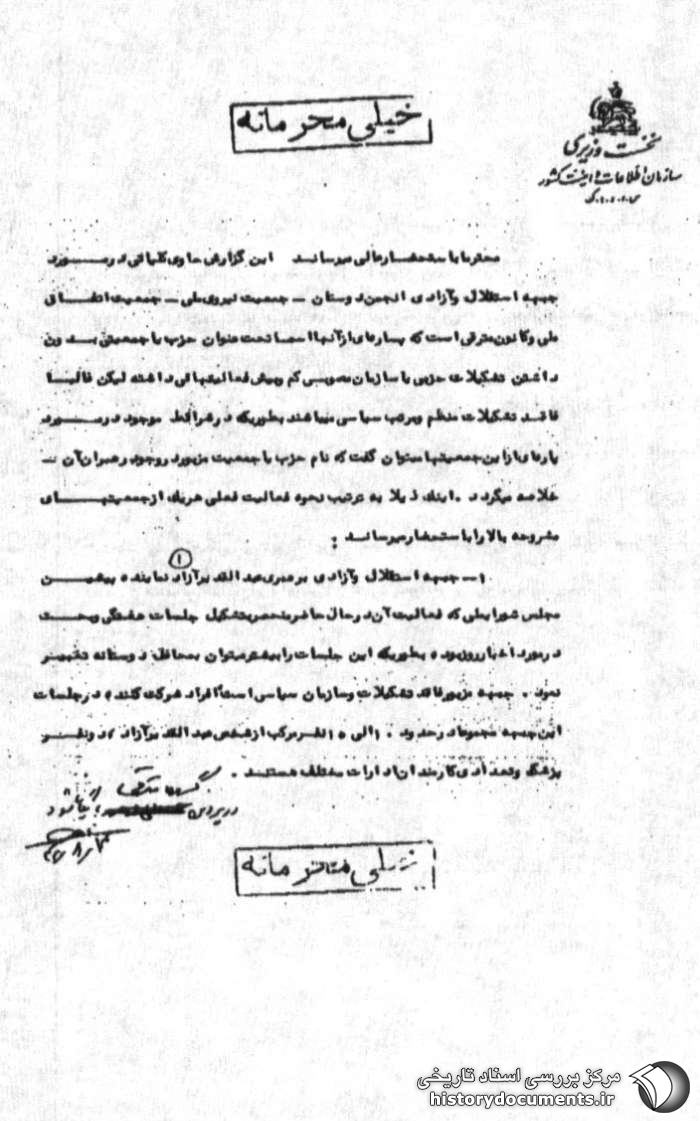 خیلی محرمانه
نخست وزیری
سازمان اطلاعات و امنیت کشور
س.ا.و.ا.ک
محترما باستحضارعالی میرساند این گزارش حاوی کلیاتی درمورد
جبهه استقلال وآزادی انجمن دوستان - جمعیت نیروی ملی - جمعیت اتفاق
ملی وکانون مترقی است که پاره‌ای ازآنها اسما تحت عنوان حزب یا جمعیتی بدون
داشتن تشکیلات حزبی یا سازمان عمومی کم وبیش فعالیتهائی داشته لیکن غالبا
فاقد تشکیلات منظم ومرتب سیاسی میباشند بطوریکه درشرائط موجود درمورد
پاره‌ای ازاین جمعیتها میتوان گفت که نام حزب یا جمعیت مزبور دروجود رهبران آن -
خلاصه میگردد. اینک ذیلا به ترتیب نحوه فعالیت فعلی هریک ازجمعیتهای
مشروحه بالا را باستحضار میرساند :
۱
۱- جبهه استقلال وآزادی برهبری عبدالقدیرآزاد نماینده پیشین
مجلس شورایملی که فعالیت آن درحال حاضرمنحصربتشکیل جلسات هفتگی وبحث
درمورد اخبارروزبوده بطوریکه این جلسات را بیشترمیتوان بمحافل دوستانه تعبیر
نمود. جبهه مزبورفاقد تشکیلات وسازمان سیاسی است افراد شرکت کننده درجلسات
این جبهه مجموعا درحدود ۱۰ الی ۱۵ نفرمرکب ازشخص عبدالقدیرآزاد، دونفر
پزشک وتعدادی کارمندان ادارات مختلف هستند.
خیلی محرمانه
مرکز بررسی اسناد تاریخی
historydocuments.ir